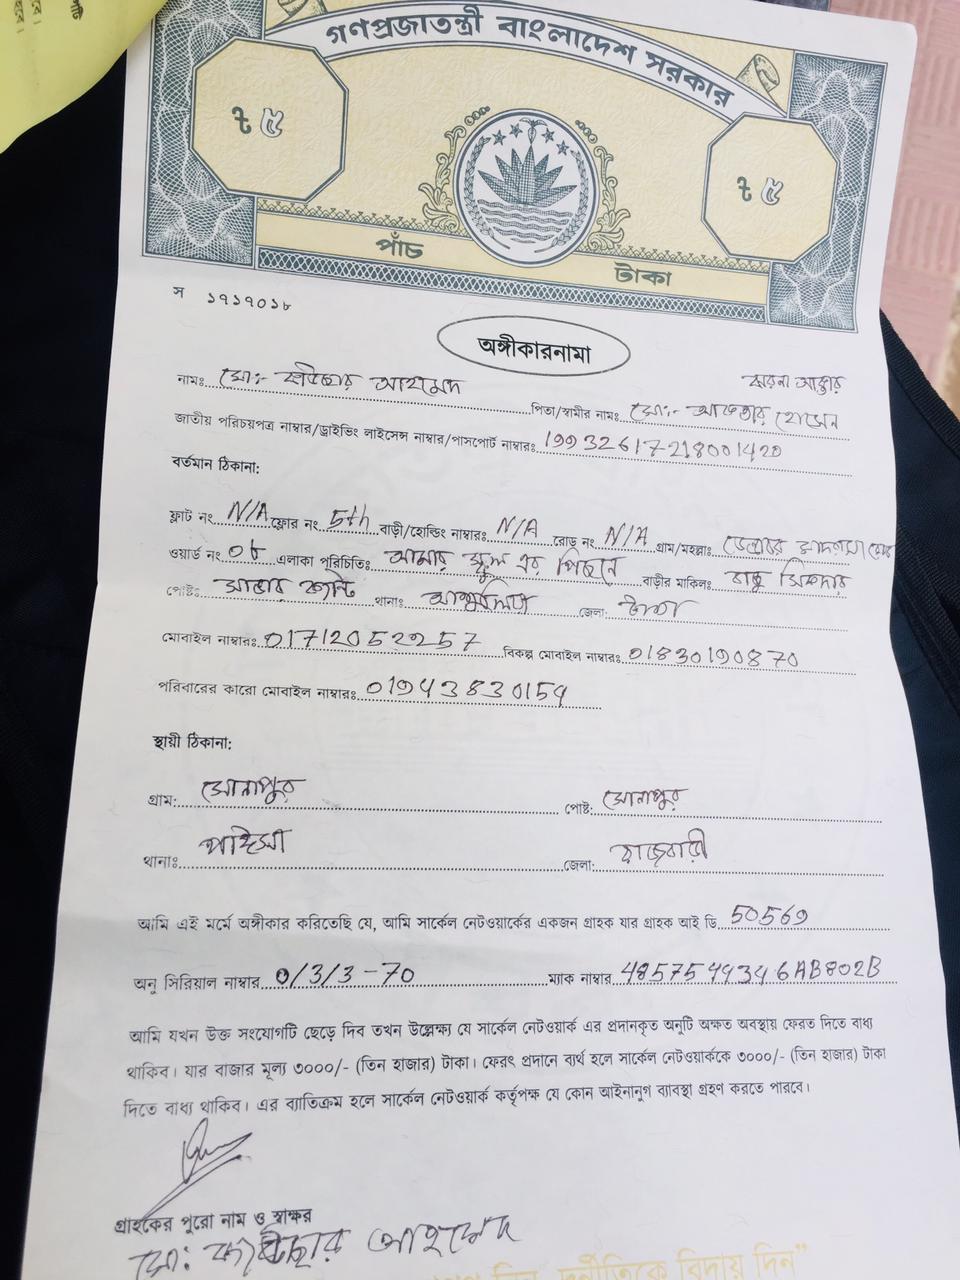 গণপ্রজাতন্ত্রী বাংলাদেশ সরকার
৳ ৫
৳ ৫
পাঁচ টাকা
স ১৭১৭০১৮
অঙ্গীকারনামা
ঝরনা আক্তার
নামঃ মোঃ- কাউছার আহমেদ পিতা/স্বামীর নামঃ মোঃ- আক্তার হোসেন
জাতীয় পরিচয়পত্র নাম্বার/ড্রাইভিং লাইসেন্স নাম্বার/পাসপোর্ট নাম্বারঃ 19932617218001420
বর্তমান ঠিকানা:
ফ্লাট নং N/A ফ্লোর নং 5th বাড়ী/হোল্ডিং নাম্বারঃ N/A রোড় নং N/A গ্রাম/মহল্লাঃ মাদরাসা রোড
ওয়ার্ড নং 08 এলাকা পরিচিতিঃ আমার স্কুল এর পিছনে বাড়ীর মাকিলঃ সিকদার
পোষ্টঃ থানাঃ আশুলিয়া জেলা: ঢাকা
মোবাইল নাম্বারঃ 01712052257 বিকল্প মোবাইল নাম্বারঃ 01830190870
পরিবারের কারো মোবাইল নাম্বারঃ 01943830154
স্থায়ী ঠিকানা:
গ্রাম: সোনাপুর পোষ্ট: সোনাপুর
থানাঃ পাংসা জেলা: রাজবাড়ী
আমি এই মর্মে অঙ্গীকার করিতেছি যে, আমি সার্কেল নেটওয়ার্কের একজন গ্রাহক যার গ্রাহক আই ডি 50569
অনু সিরিয়াল নাম্বার 0/3/3-70 ম্যাক নাম্বার 48575449346AB802B
আমি যখন উক্ত সংযোগটি ছেড়ে দিব তখন উল্লেক্ষ্য যে সার্কেল নেটওয়ার্ক এর প্রদানকৃত অনুটি অক্ষত অবস্থায় ফেরত দিতে বাধ্য
থাকিব। যার বাজার মূল্য ৩০০০/- (তিন হাজার) টাকা। ফেরৎ প্রদানে ব্যর্থ হলে সার্কেল নেটওয়ার্ককে ৩০০০/- (তিন হাজার) টাকা
দিতে বাধ্য থাকিব। এর ব্যাতিক্রম হলে সার্কেল নেটওয়ার্ক কর্তৃপক্ষ যে কোন আইনানুগ ব্যাবস্থা গ্রহণ করতে পারবে।
গ্রাহকের পুরো নাম ও স্বাক্ষর
মো: কাউছার আহমেদ
দুর্নীতিকে বিদায় দিন"